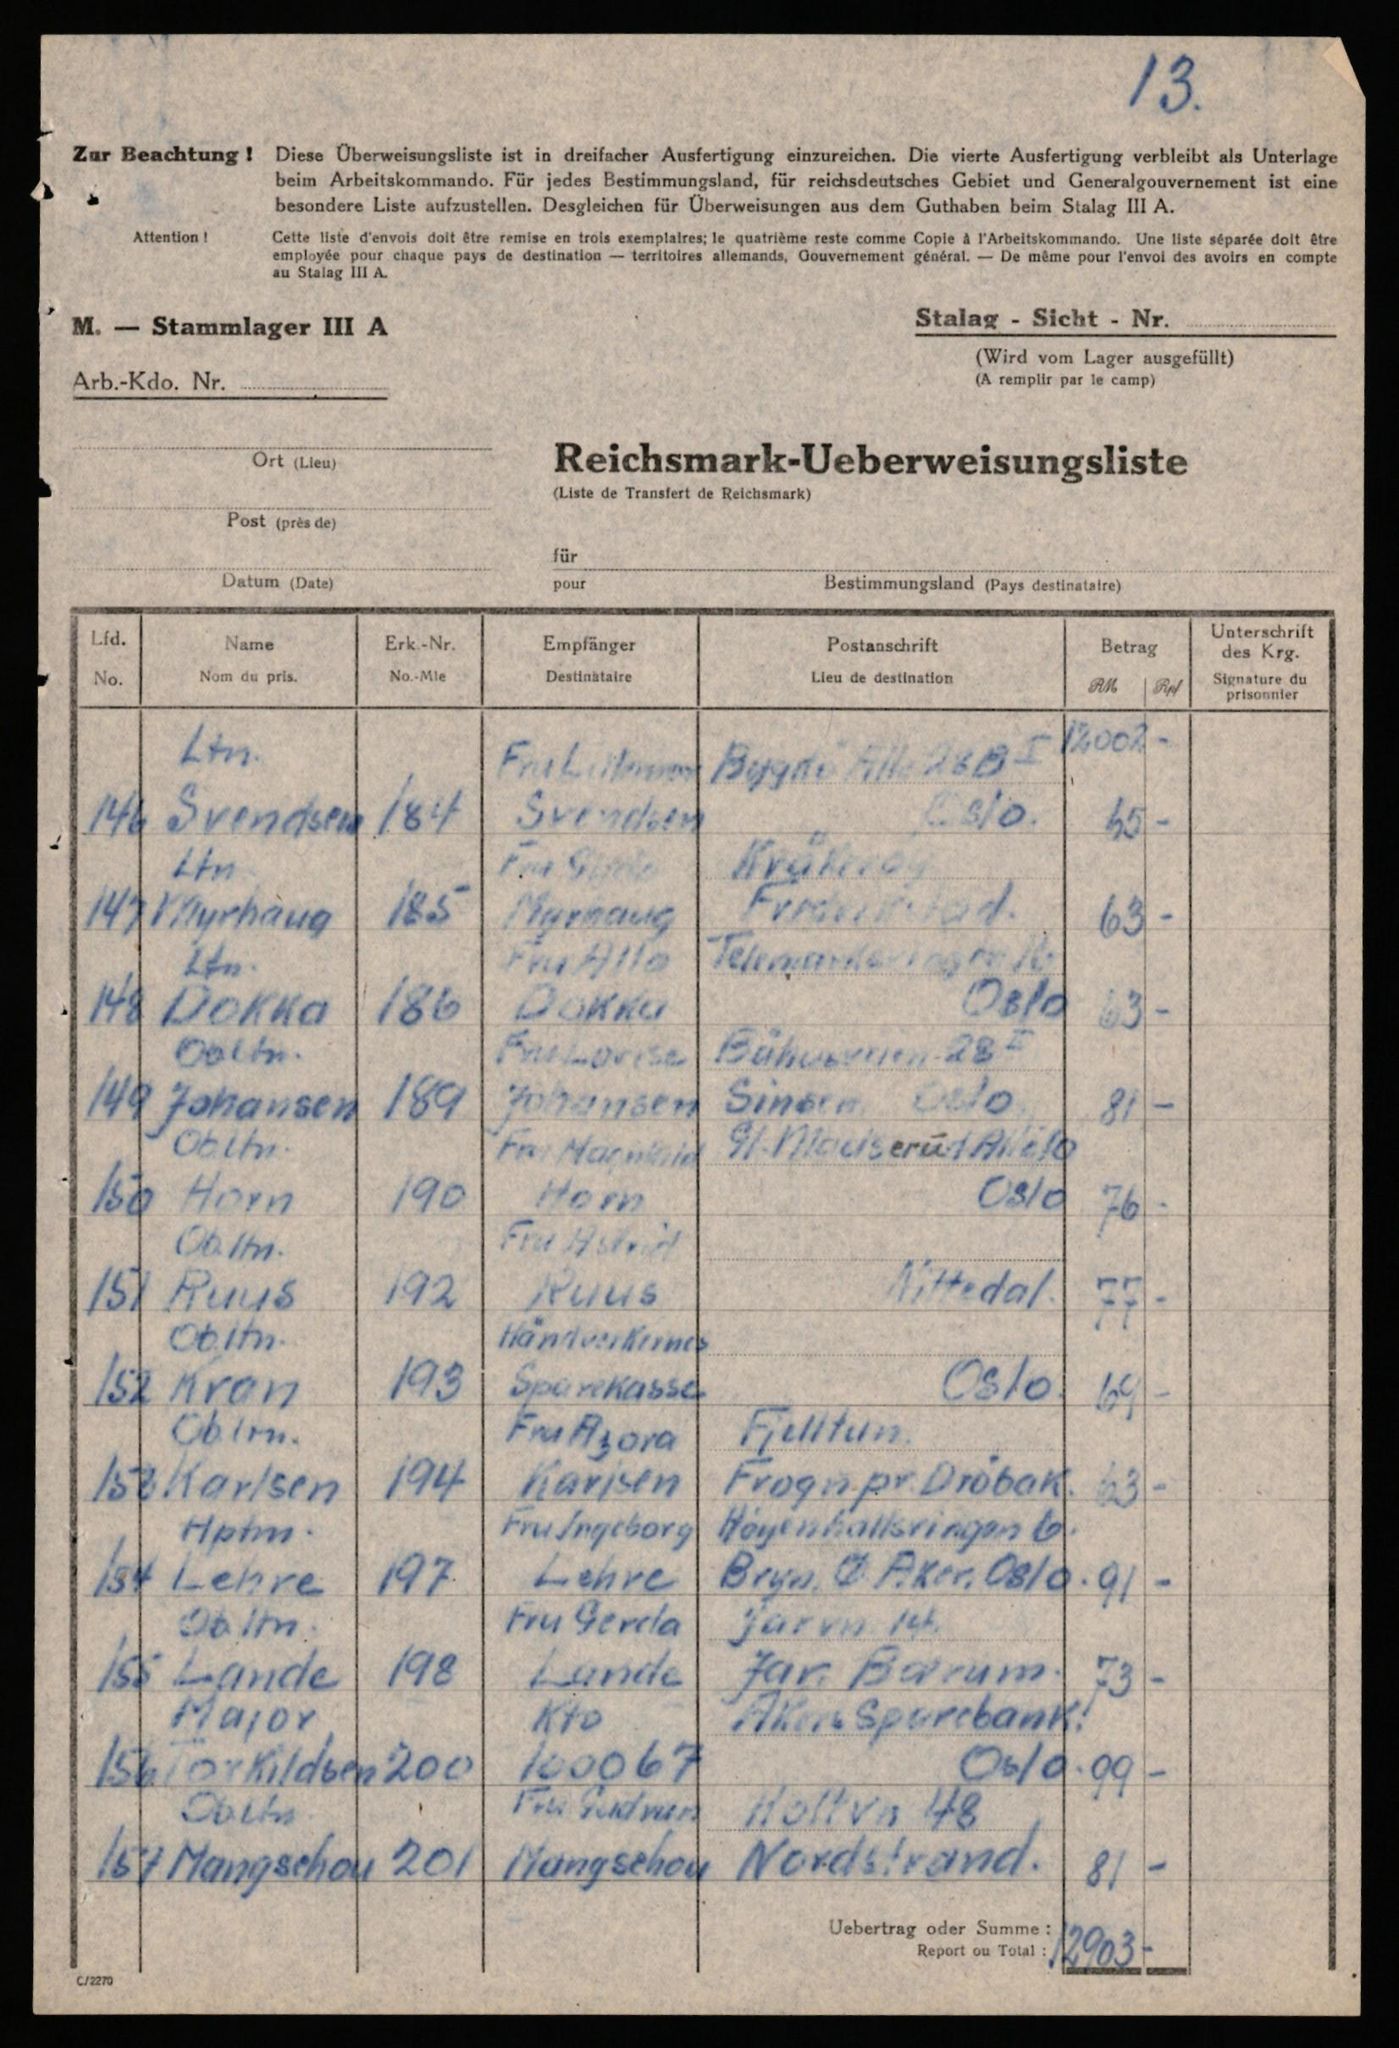 13.
Zur Beachtung! Diese Überweisungsliste ist in dreifacher Ausfertigung einzureichen. Die vierte Ausfertigung verbleibt als Unterlage
beim Arbeitskommando. Für jedes Bestimmungsland, für reichsdeutsches Gebiet und Generalgouvernement ist eine
besondere Liste aufzustellen. Desgleichen für Überweisungen aus dem Guthaben beim Stalag III A.
Attention! Cette liste d'envois doit être remise en trois exemplaires; le quatrième reste comme Copie à l'Arbeitskommando. Une liste séparée doit être
employée pour chaque pays de destination — territoires allemands, Gouvernement général. — De même pour l'envoi des avoirs en compte
au Stalag III A.
M. — Stammlager III A
Stalag - Sicht - Nr.
(Wird vom Lager ausgefüllt)
(A remplir par le camp)
Arb.-Kdo. Nr.
Ort (Lieu)
Reichsmark-Ueberweisungsliste
(Liste de Transfert de Reichsmark)
Post (près de)
für
Datum (Date)
pour Bestimmungsland (Pays destinataire)
Lfd. Name Erk.-Nr. Empfänger Postanschrift Betrag Unterschrift des Krg.
No. Nom du pris. No.-Mle Destinataire Lieu de destination RM Rpf Signature du prisonnier
Ltn. Fru Bygdö Alle 28B I 12002 -
146 Svendsen 184 Svendsen Oslo. 65 -
Ltn. Fru Kråkeröy
147 Myrhaug 185 Myrhaug Fredrikstad. 63 -
Ltn. Fru Telemarksvingen 16
148 Dokka 186 Dokka Oslo 63 -
Obltn. Fru Lovise 28 I
149 Johansen 189 Johansen Sinsen Oslo 81 -
Obltn. Fru Magnhild Gl. Madserud Alle 10
150 Horn 190 Horn Oslo 76 -
Obltn. Fru Astrid
151 Ruus 192 Ruus Nittedal. 77 -
Obltn. Håndverkernes
152 Kran 193 Sparekasse Oslo. 69 -
Obltn. Fru Azora Fjelltun.
153 Karlsen 194 Karlsen Frogn pr. Dröbak. 63 -
Hptm. Fru Ingeborg Höyenhallsvingen 6.
154 Lehre 197 Lehre Bryn, Ö. Aker. Oslo. 91 -
Obltn. Fru Gerda Jarvn 14.
155 Lande 198 Lande Jar. Bærum. 73 -
Major Kto Akers Sparebank!
156 Torkildsen 200 100067 Oslo. 99 -
Obltn. Fru Gudrun Holtvn 48
157 Mangschou 201 Mangschou Nordstrand. 81 -
Uebertrag oder Summe :
Report ou Total : 12903 -
C/2270